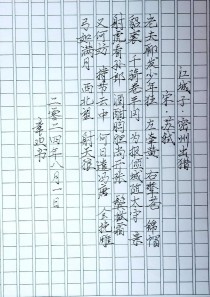 江城子 密州出猎
宋 苏轼
老夫聊发少年狂 左牵黄 右擎苍 锦帽
貂裘 千骑卷平冈 为报倾城随太守 亲
射虎 看孙郎 酒酣胸胆尚开张 鬓微霜
又何妨 持节云中 何日遣冯唐 会挽雕
弓如满月 西北望 射天狼
二〇二四年八月一日